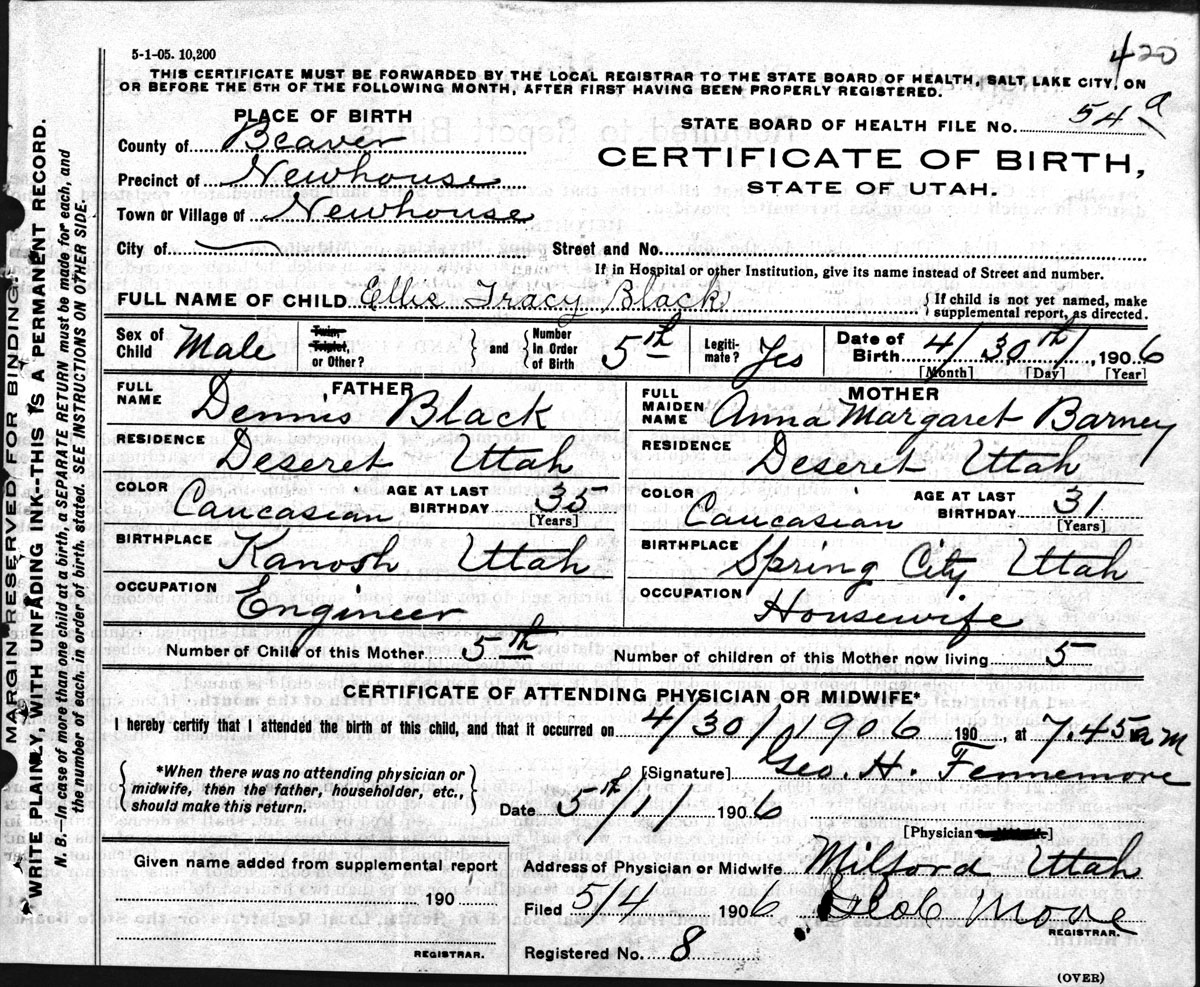 5-1-05. 10,200
420
THIS CERTIFICATE MUST BE FORWARDED BY THE LOCAL REGISTRAR TO THE STATE BOARD OF HEALTH, SALT LAKE CITY, ON
OR BEFORE THE 5TH OF THE FOLLOWING MONTH, AFTER FIRST HAVING BEEN PROPERLY REGISTERED.
PLACE OF BIRTH
County of Beaver
Precinct of Newhouse
Town or Village of Newhouse
City of
STATE BOARD OF HEALTH FILE No. 54 a
CERTIFICATE OF BIRTH,
STATE OF UTAH.
Street and No.
If in Hospital or other Institution, give its name instead of Street and number.
FULL NAME OF CHILD Ellis Tracy Black
If child is not yet named, make
supplemental report, as directed.
Sex of Child Male
Twin, Triplet, or Other?
and
Number In Order of Birth 5th
Legiti-mate? Yes
Date of Birth 4/30th/, 1906
[Month] [Day] [Year]
FATHER
FULL NAME Dennis Black
RESIDENCE Deseret Uttah
COLOR Caucasian AGE AT LAST BIRTHDAY 35 [Years]
BIRTHPLACE Kanosh Uttah
OCCUPATION Engineer
MOTHER
FULL MAIDEN NAME Anna Margaret Barney
RESIDENCE Deseret Uttah
COLOR Caucasian AGE AT LAST BIRTHDAY 31 [Years]
BIRTHPLACE Spring City Uttah
OCCUPATION Housewife
Number of Child of this Mother 5th
Number of children of this Mother now living 5
CERTIFICATE OF ATTENDING PHYSICIAN OR MIDWIFE*
I hereby certify that I attended the birth of this child, and that it occurred on 4/30/1906 190 , at 7.45 a m
*When there was no attending physician or
midwife, then the father, householder, etc.,
should make this return.
[Signature] Geo. H. Fennemore
Date 5th/1/ 1906
[Physician]
Given name added from supplemental report
190
REGISTRAR.
Address of Physician or Midwife Milford Uttah
Filed 5/4 1906
REGISTRAR.
Registered No. 8
(OVER)
MARGIN RESERVED FOR BINDING
WRITE PLAINLY, WITH UNFADING INK--THIS IS A PERMANENT RECORD.
N. B.—In case of more than one child at a birth, a SEPARATE RETURN must be made for each, and
the number of each, in order of birth, stated. SEE INSTRUCTIONS ON OTHER SIDE.